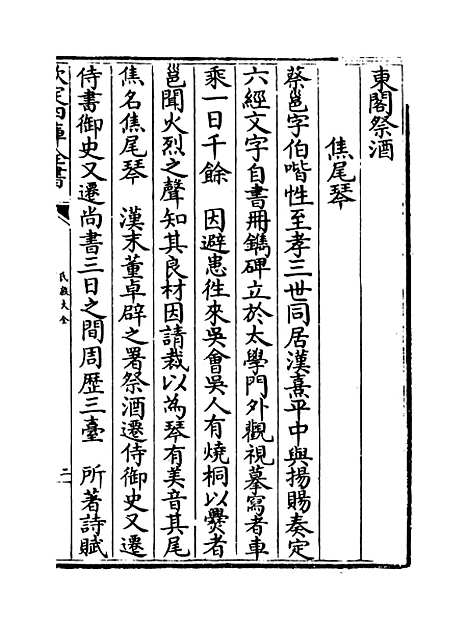 東閣祭酒
焦尾琴
蔡邕字伯喈性至孝三世同居漢熹平中與揚賜奏定
六經文字自書冊鐫碑立於太學門外觀視摹寫者車
乘一日千餘　因避患往來吳會吳人有燒桐以爨者
邕聞火烈之聲知其良材因請裁以為琴有美音其尾
焦名焦尾琴　漢末董卓辟之署祭酒遷侍御史又遷
侍書御史又遷尚書三日之間周歷三臺　所著詩賦
欽定四庫全書
氏族大全